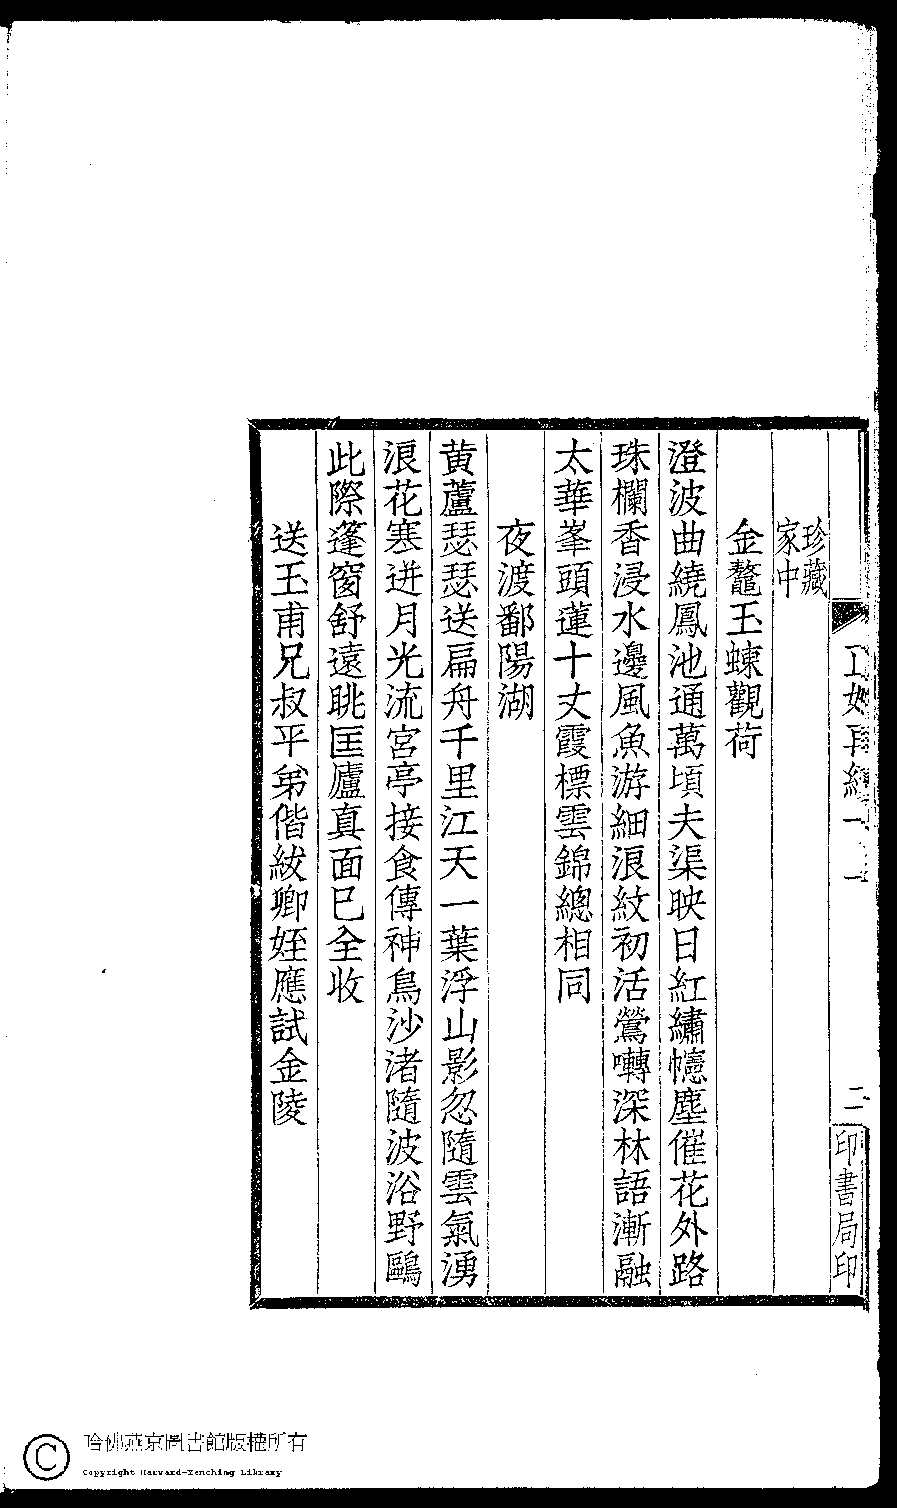 珍藏
家中
金鼇玉蝀觀荷
澄波曲繞鳳池通萬頃夫渠映日紅繡幰塵催花外路
珠欄香浸水邊風魚游細浪紋初活鶯囀深林語漸融
太華峯頭蓮十丈霞標雲錦總相同
夜渡鄱陽湖
黃蘆瑟瑟送扁舟千里江天一葉浮山影忽隨雲氣湧
浪花塞迸月光流宮亭接食傳神鳥沙渚隨波浴野鷗
此際篷窗舒遠眺匡廬真面已全收
送玉甫兄叔平弟偕紱卿姪應試金陵
再續一
二
印書局印
哈佛燕京圖書館版權所有
Copyright Harvard-Yenching Library